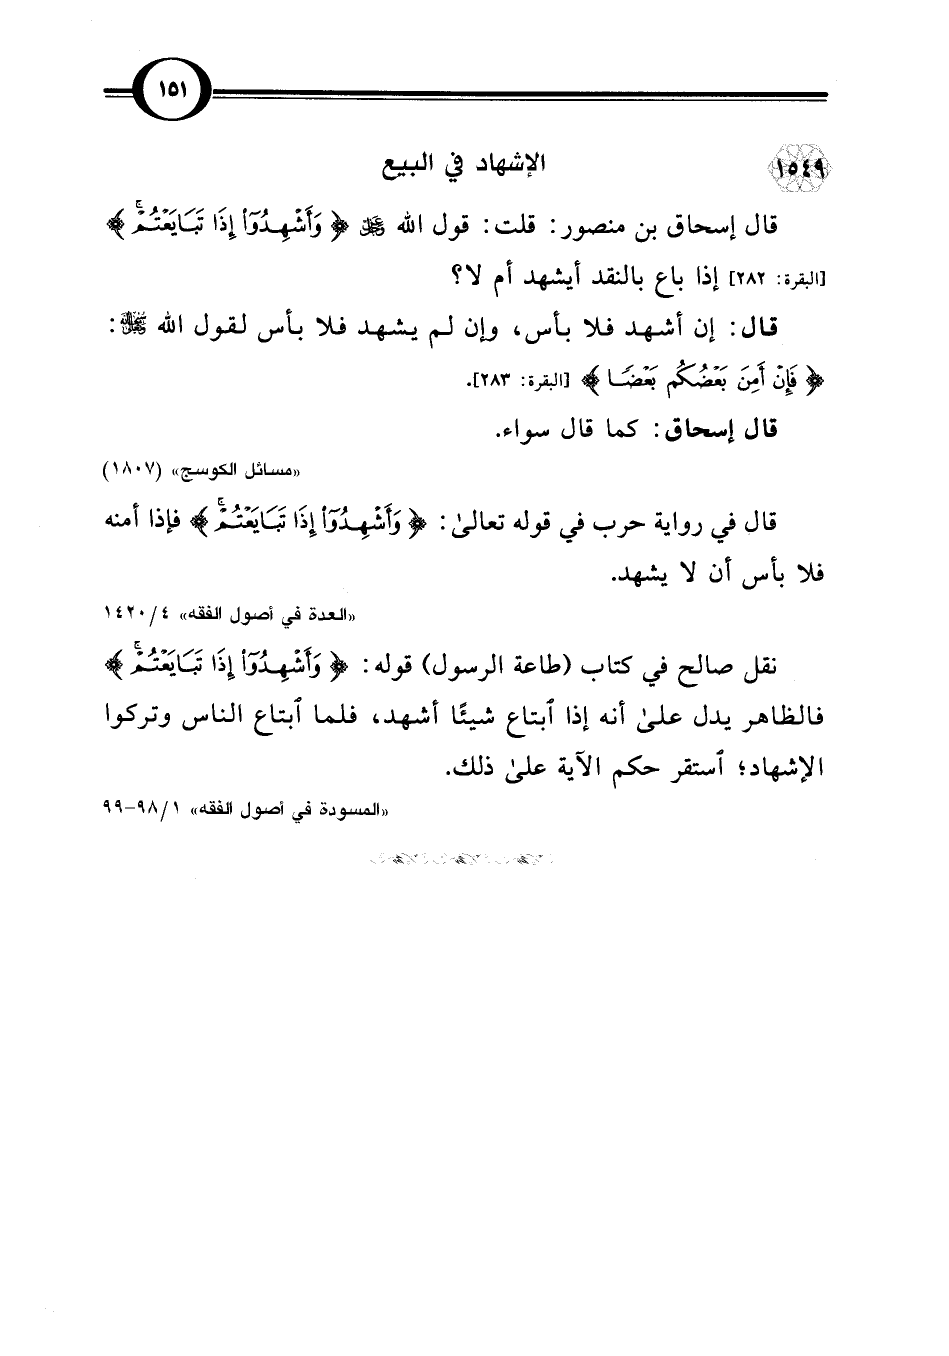 ١٥١
١٥٤٩ الإشهاد في البيع
قال إسحاق بن منصور: قلت: قول الله ﷿ ﴿ وَأَشْهِدُوٓا۟ إِذَا تَبَايَعْتُمْ ۚ ﴾
[البقرة: ٢٨٢] إذا باع بالنقد أيشهد أم لا؟
قال: إن أشهد فلا بأس، وإن لم يشهد فلا بأس لقول الله ﷿:
﴿ فَإِنْ أَمِنَ بَعْضُكُم بَعْضًا ﴾ [البقرة: ٢٨٣].
قال إسحاق: كما قال سواء.
«مسائل الكوسج» (١٨٠٧)
قال في رواية حرب في قوله تعالىٰ: ﴿ وَأَشْهِدُوٓا۟ إِذَا تَبَايَعْتُمْ ۚ ﴾ فإذا أمنه
فلا بأس أن لا يشهد.
«العدة في أصول الفقه» ٤/ ١٤٢٠
نقل صالح في كتاب (طاعة الرسول) قوله: ﴿ وَأَشْهِدُوٓا۟ إِذَا تَبَايَعْتُمْ ۚ ﴾
فالظاهر يدل علىٰ أنه إذا ٱبتاع شيئًا أشهد، فلما ٱبتاع الناس وتركوا
الإشهاد؛ ٱستقر حكم الآية علىٰ ذلك.
«المسودة في أصول الفقه» ١/ ٩٨-٩٩